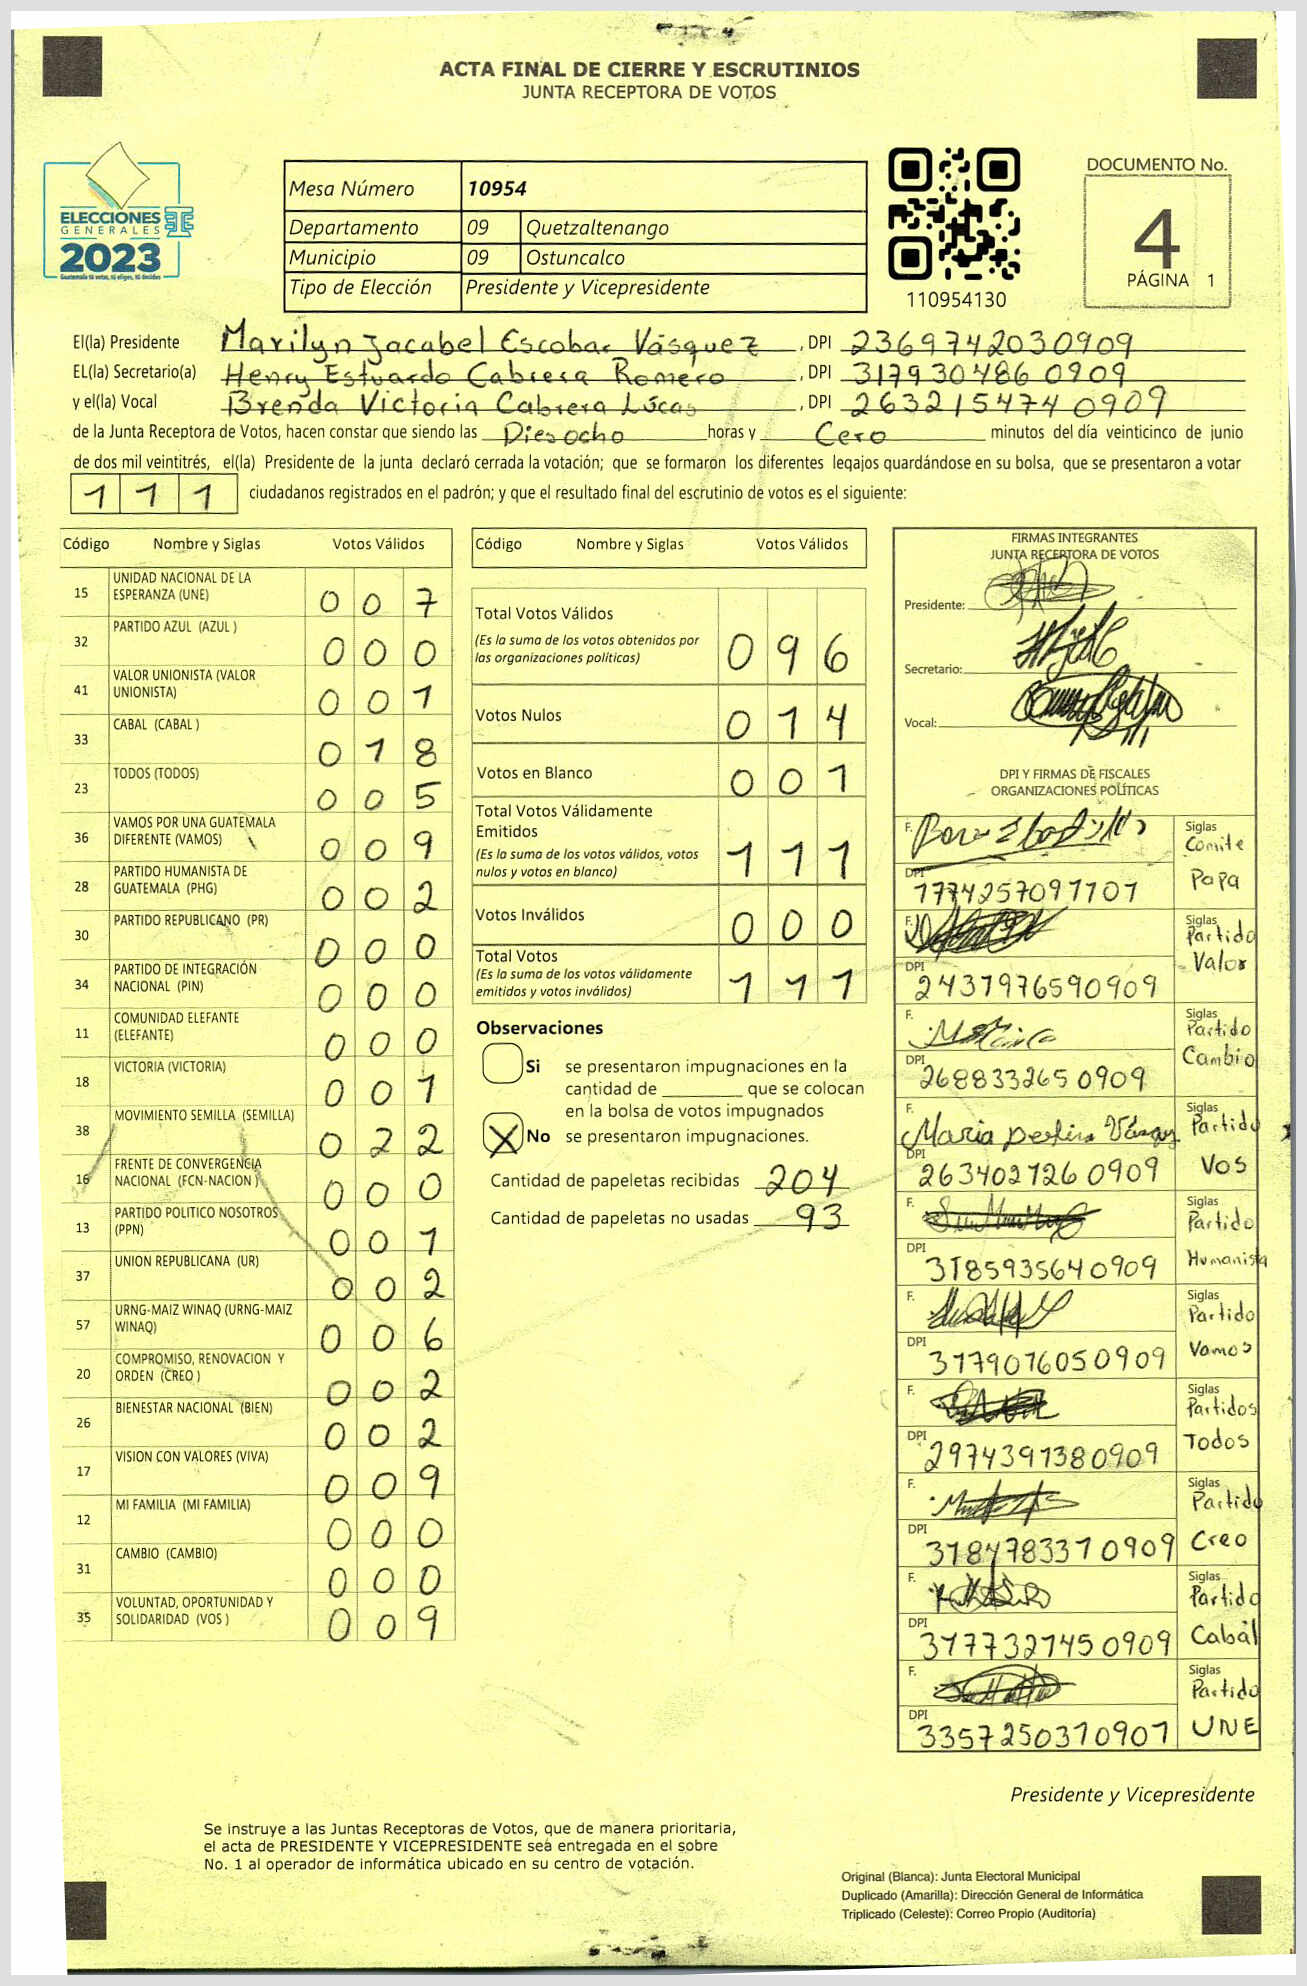 ACTA FINAL DE CIERRE Y ESCRUTINIOS
JUNTA RECEPTORA DE VOTOS
ELECCIONES
GENERALES
2023
Mesa Número 10954
Departamento 09 Quetzaltenango
Municipio 09 Ostuncalco
Tipo de Elección Presidente y Vicepresidente
110954130
DOCUMENTO No.
4
PÁGINA 1
El(la) Presidente Marilyn Jacabel Escobar Vásquez, DPI 2369742030909
EL(la) Secretario(a) Henry Estuardo Cabrera Romero, DPI 317930486 0909
y el(la) Vocal Brenda Victoria Cabrera Lúcas, DPI 263215474 0909
de la Junta Receptora de Votos, hacen constar que siendo las Diesocho horas y Cero minutos del día veinticinco de junio
de dos mil veintitrés, el(la) Presidente de la junta declaró cerrada la votación; que se formaron los diferentes legajos guardándose en su bolsa, que se presentaron a votar
111 ciudadanos registrados en el padrón; y que el resultado final del escrutinio de votos es el siguiente:
Código Nombre y Siglas Votos Válidos
15 UNIDAD NACIONAL DE LA ESPERANZA (UNE) 0 0 7
32 PARTIDO AZUL (AZUL ) 0 0 0
41 VALOR UNIONISTA (VALOR UNIONISTA) 0 0 1
33 CABAL (CABAL ) 0 1 8
23 TODOS (TODOS) 0 0 5
36 VAMOS POR UNA GUATEMALA DIFERENTE (VAMOS) 0 0 9
28 PARTIDO HUMANISTA DE GUATEMALA (PHG) 0 0 2
30 PARTIDO REPUBLICANO (PR) 0 0 0
34 PARTIDO DE INTEGRACIÓN NACIONAL (PIN) 0 0 0
11 COMUNIDAD ELEFANTE (ELEFANTE) 0 0 0
18 VICTORIA (VICTORIA) 0 0 1
38 MOVIMIENTO SEMILLA (SEMILLA) 0 2 2
16 FRENTE DE CONVERGENCIA NACIONAL (FCN-NACION ) 0 0 0
13 PARTIDO POLITICO NOSOTROS (PPN) 0 0 1
37 UNION REPUBLICANA (UR) 0 0 2
57 URNG-MAIZ WINAQ (URNG-MAIZ WINAQ) 0 0 6
20 COMPROMISO, RENOVACION Y ORDEN (CREO ) 0 0 2
26 BIENESTAR NACIONAL (BIEN) 0 0 2
17 VISION CON VALORES (VIVA) 0 0 9
12 MI FAMILIA (MI FAMILIA) 0 0 0
31 CAMBIO (CAMBIO) 0 0 0
35 VOLUNTAD, OPORTUNIDAD Y SOLIDARIDAD (VOS ) 0 0 9
Código Nombre y Siglas Votos Válidos
Total Votos Válidos 0 9 6
(Es la suma de los votos obtenidos por
las organizaciones políticas)
Votos Nulos 0 1 4
Votos en Blanco 0 0 1
Total Votos Válidamente
Emitidos 1 1 1
(Es la suma de los votos válidos, votos
nulos y votos en blanco)
Votos Inválidos 0 0 0
Total Votos 1 1 1
(Es la suma de los votos válidamente
emitidos y votos inválidos)
Observaciones
Si se presentaron impugnaciones en la
cantidad de ________ que se colocan
en la bolsa de votos impugnados
X No se presentaron impugnaciones.
Cantidad de papeletas recibidas 204
Cantidad de papeletas no usadas 93
FIRMAS INTEGRANTES
JUNTA RECEPTORA DE VOTOS
Presidente:
Secretario:
Vocal:
DPI Y FIRMAS DE FISCALES
ORGANIZACIONES POLÍTICAS
F. Siglas Comite Papa
DPI 1774257091701
F. Siglas Partido Valor
DPI 2431976590909
F. Siglas Partido Cambio
DPI 268833265 0909
F. Maria Siglas Partido VOS
DPI 263402726 0909
F. Siglas Partido Humanista
DPI 318593564 0909
F. Siglas Partido Vamos
DPI 3179076050909
F. Siglas Partidos Todos
DPI 2974391380909
F. Siglas Partido Creo
DPI 318478337 0909
F. Siglas Partido Cabal
DPI 317732745 0909
F. Siglas Partido UNE
DPI 3357250370901
Presidente y Vicepresidente
Se instruye a las Juntas Receptoras de Votos, que de manera prioritaria,
el acta de PRESIDENTE Y VICEPRESIDENTE sea entregada en el sobre
No. 1 al operador de informática ubicado en su centro de votación.
Original (Blanca): Junta Electoral Municipal
Duplicado (Amarilla): Dirección General de Informática
Triplicado (Celeste): Correo Propio (Auditoría)